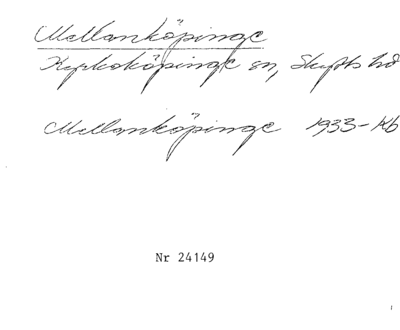 Mellanköpinge
Kyrkoköpinge sn, Skytts hd
Mellanköpinge 1933 - Kb
Nr 24149